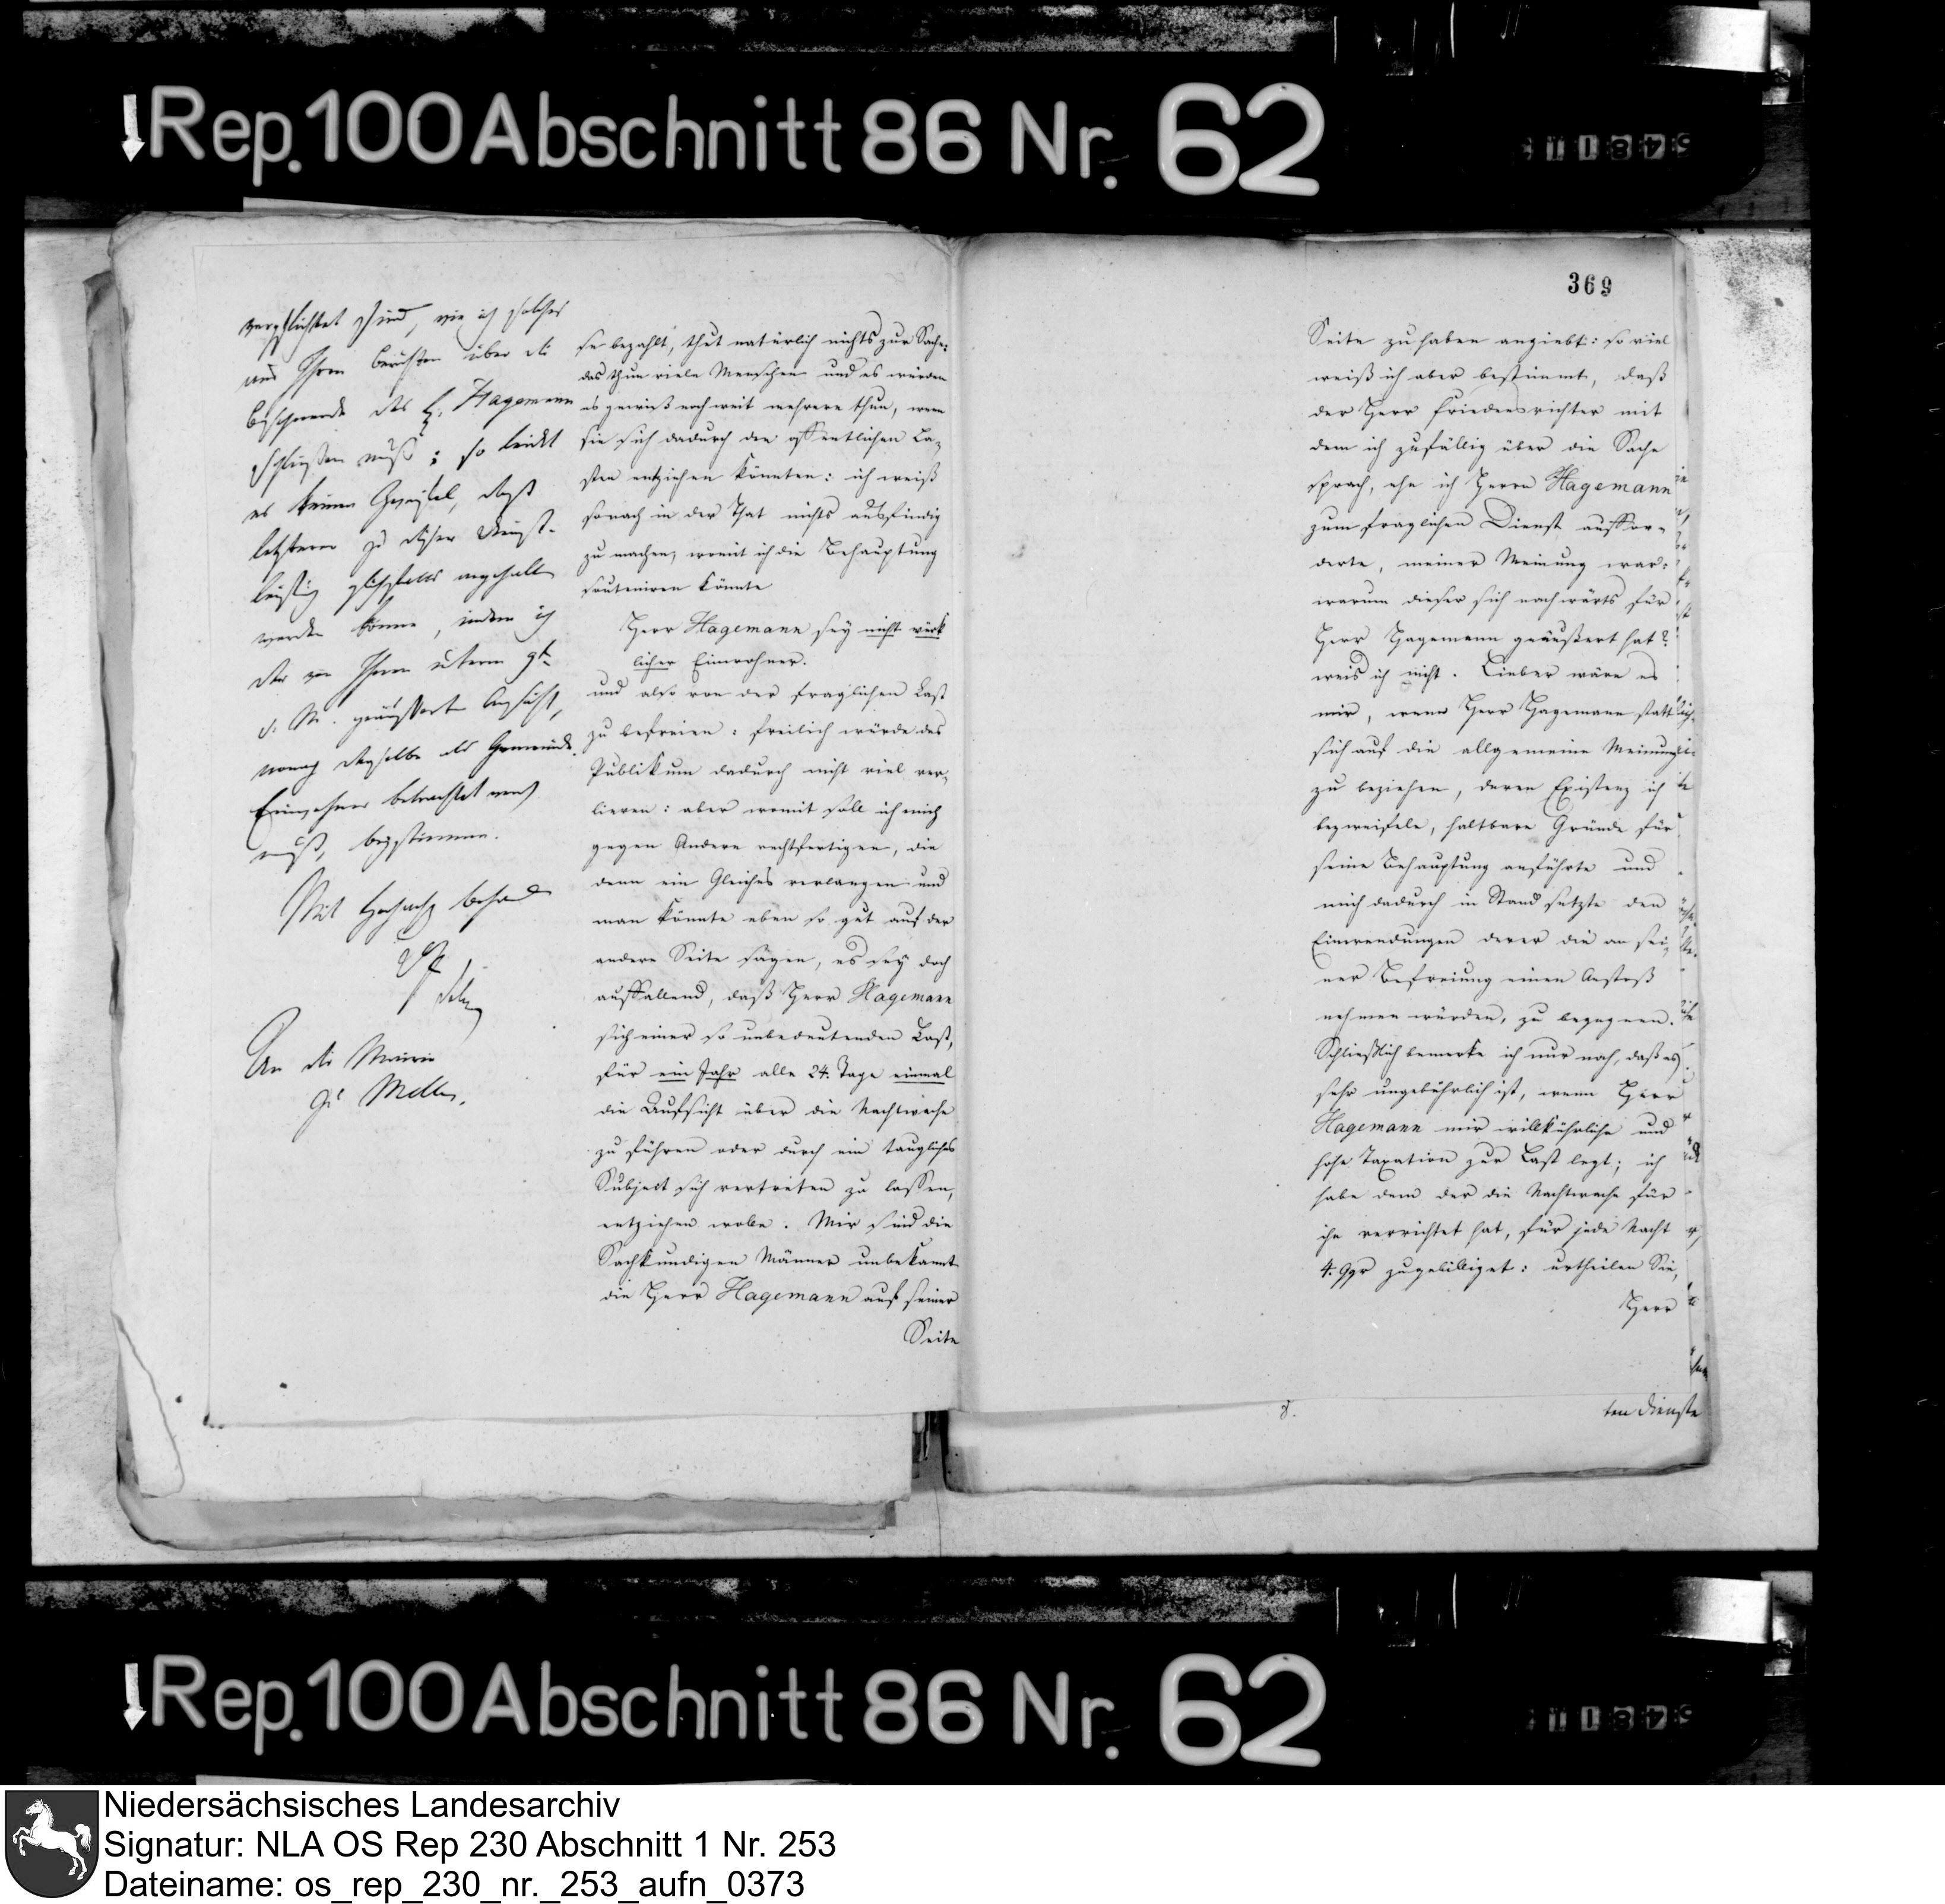 Rep. 100 Abschnitt 86 Nr. 62
verpflichtet sind, wie ich solches
aus Ihren Berichten über die
Beschwerde des H. Hagemann
schließen muß; so leidet
es keinen Zweifel, daß
letzterer zu dieser Dienst-
leistung gleichfalls angehalten
werden könne, indem ich
der von Ihnen unterm 9t
d. M. geäußerten Ansicht,
wonach derselbe als Gemeinde
Einwohner betrachtet werden
muß, beystimme.
Mit Hochachtg
An die Mairie
zu Melle.
se bezahlt, thut natürlich nichts zur Sache:
das thun viele Menschen und es würden
es gewiß noch weit mehrere thun, wenn
sie sich dadurch den öffentlichen La-
sten entziehen könnten: ich weiß
sonach in der That nichts ausfindig
zu machen, womit ich die Behauptung
souteniren könnte
Herr Hagemann sey nicht wirk
licher Einwohner.
und also von der fraglichen Last
zu befreien: freilich würde das
Publikum dadurch nicht viel ver-
lieren: aber womit soll ich mich
gegen Andere rechtfertigen, die
denn ein Gleiches verlangen und
man könnte eben so gut auf der
andere Seite sagen, es sey doch
auffallend, daß Herr Hagemann
sich einer so unbedeutenden Last,
für ein Jahr alle 24. Tage einmal
die Aufsicht über die Nachtwache
zu führen oder durch ein taugliches
Subject sich vertreten zu lassen,
entziehen wolle. Mir sind die
Sachkundigen Männer unbekannt
die Herr Hagemann auf seiner
Seite
369
Seite zu haben angiebt: so viel
weiß ich aber bestimmt, daß
der Herr Friedensrichter mit
dem ich zufällig über die Sache
sprach, ehe ich Herrn Hagemann
zum fraglichen Dienst auffor-
derte, meiner Meinung war:
warum dieser sich nachwärts für
Herr Hagemann geäußert hat?
weis ich nicht. Lieber wäre es
mir, wenn Herr Hagemann statt
sich auf die allgemeine Meinung
zu beziehen, deren Existenz ich
bezweifele, haltbare Gründe für
seine Behauptung anführte und
mich dadurch in Stand setzte den
Einwendungen derer die an sei-
ner Befreiung einen Anstoß
nehmen würden, zu begegnen.
Schließlich bemerke ich nur noch, daß es
sehr ungebührlich ist, wenn Herr
Hagemann mir willkührliche und
hohe Taxation zur Last legt; ich
habe dem der die Nachtwache für
ihn verrichtet hat, für jede Nacht
4. Ggr zugebilliget: urtheilen Sie,
Herr
ten Dienste
Rep. 100 Abschnitt 86 Nr. 62
Niedersächsisches Landesarchiv
Signatur: NLA OS Rep 230 Abschnitt 1 Nr. 253
Dateiname: os_rep_230_nr._253_aufn_0373